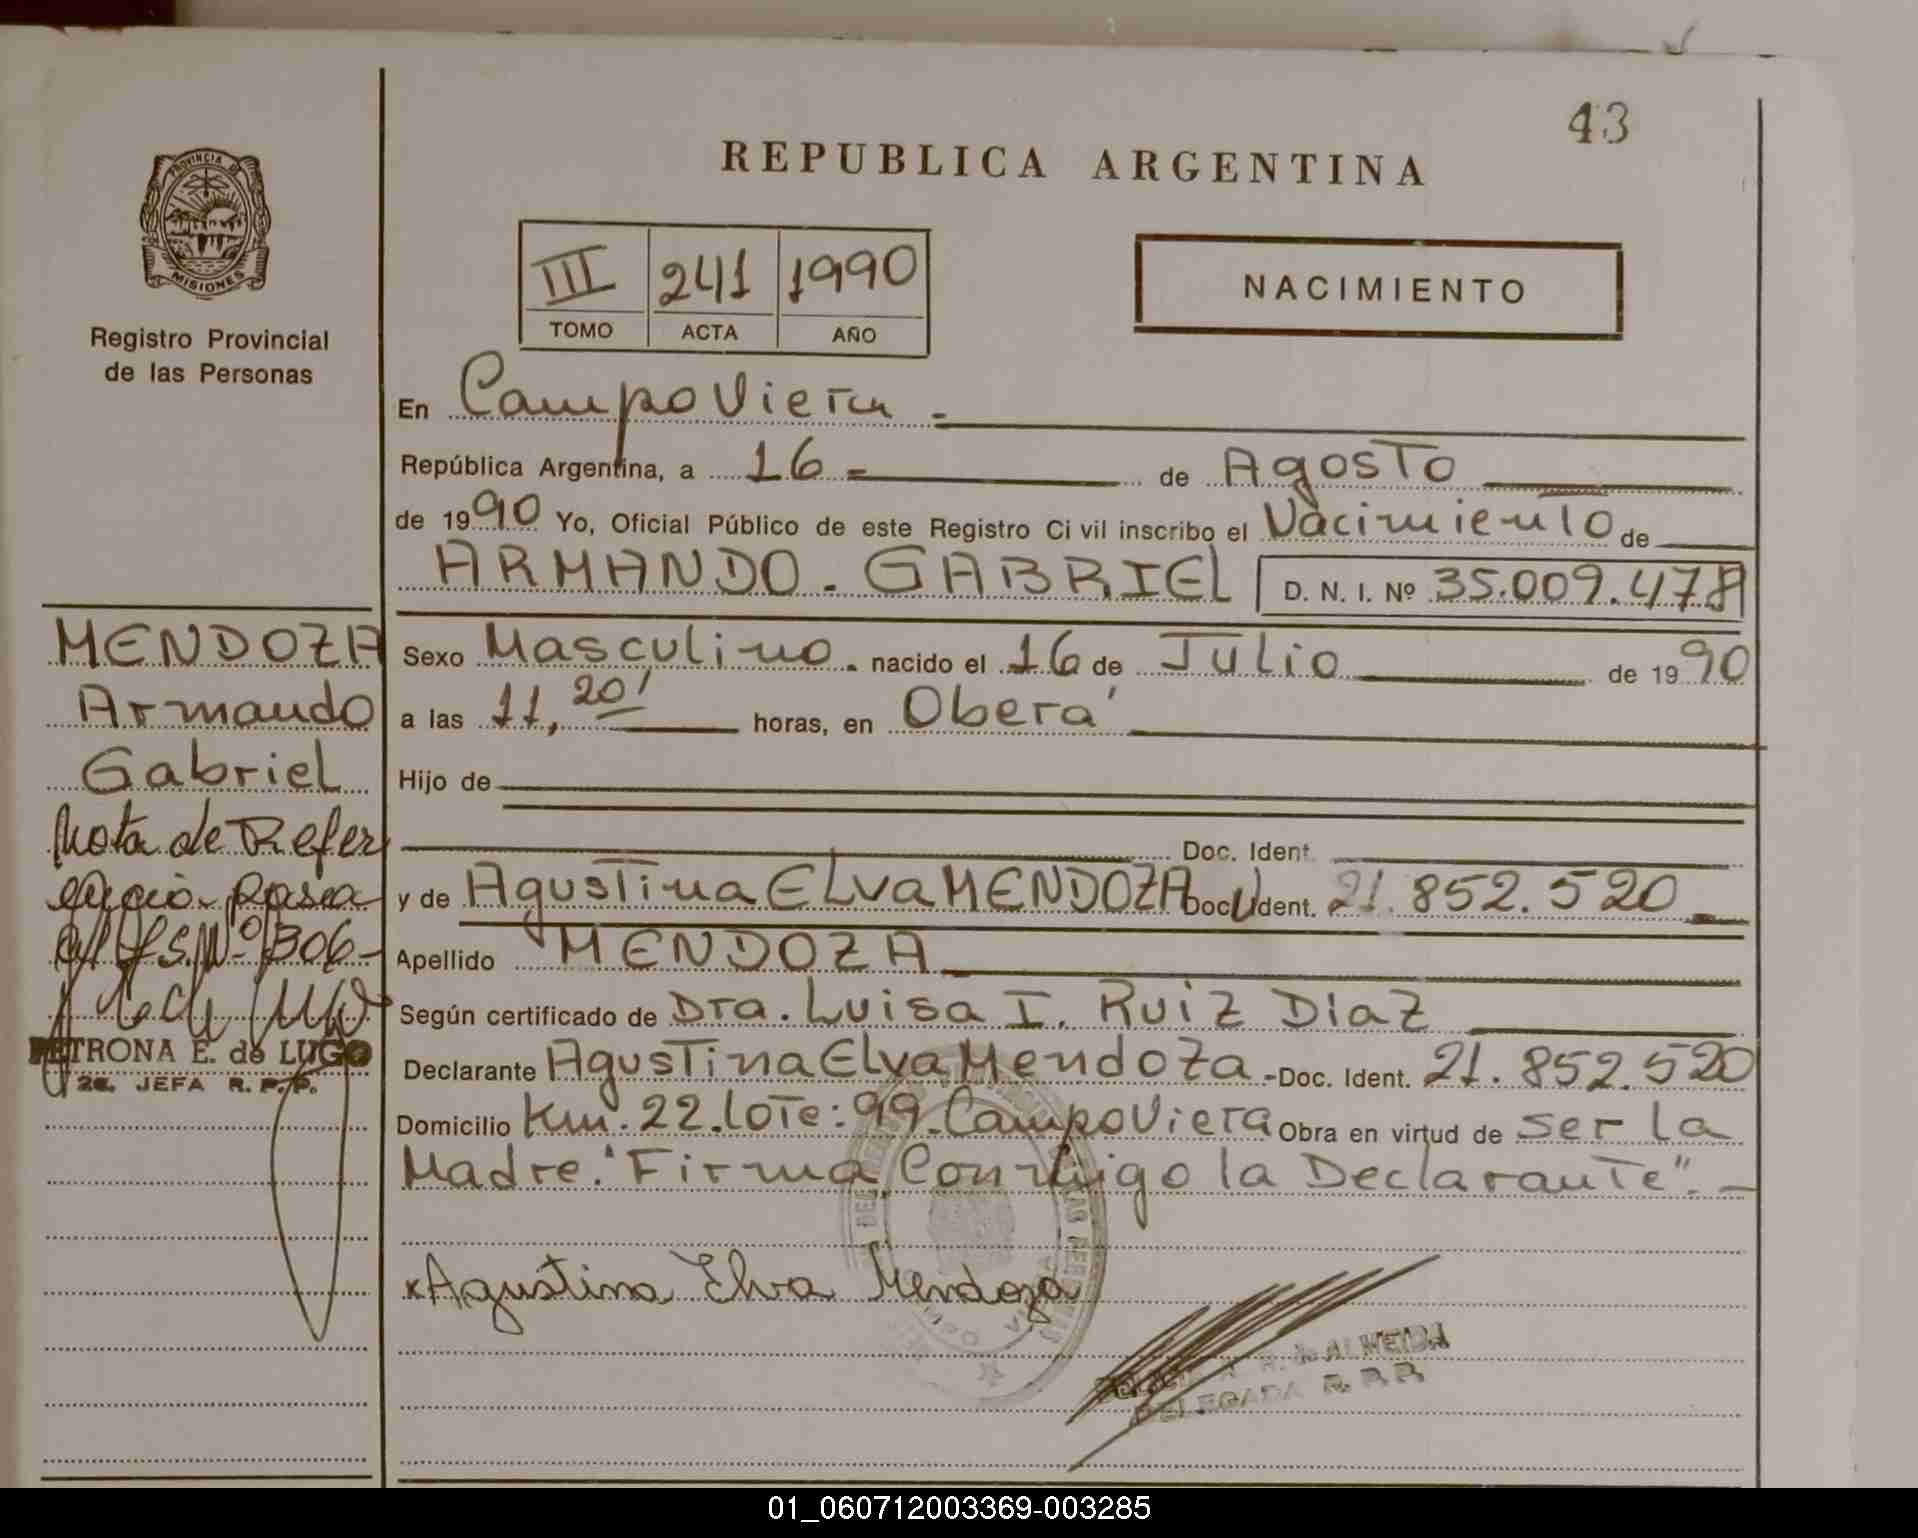 43
REPUBLICA ARGENTINA
PROVINCIA DE
MISIONES
Registro Provincial
de las Personas
III 241 1990
TOMO ACTA AÑO
NACIMIENTO
En Campo Viera.
República Argentina, a 16 de Agosto
de 1990 Yo, Oficial Público de este Registro Civil inscribo el Nacimiento de
ARMANDO. GABRIEL D. N. I. Nº 35.009.478
Sexo Masculino. nacido el 16 de Julio de 1990
a las 11, 20' horas, en Oberá
Hijo de
Doc. Ident.
y de Agustina ELva MENDOZA Doc. Ident. 21.852.520
Apellido MENDOZA
Según certificado de Dra. Luisa I. Ruiz Diaz
Declarante Agustina Elva Mendoza - Doc. Ident. 21.852.520
Domicilio Km. 22. lote: 99. Campo Viera Obra en virtud de ser la
Madre. "Firma Conmigo la Declarante". -
x Agustina Elva Mendoza
H. de ALMEIDA
DELEGADA R. P. P.
MENDOZA
Armando
Gabriel
Nota de Refer
encia. Pasa
al Fs. Nº 306-
PETRONA E. de LUGO
2a. JEFA R. P. P.
01_060712003369-003285